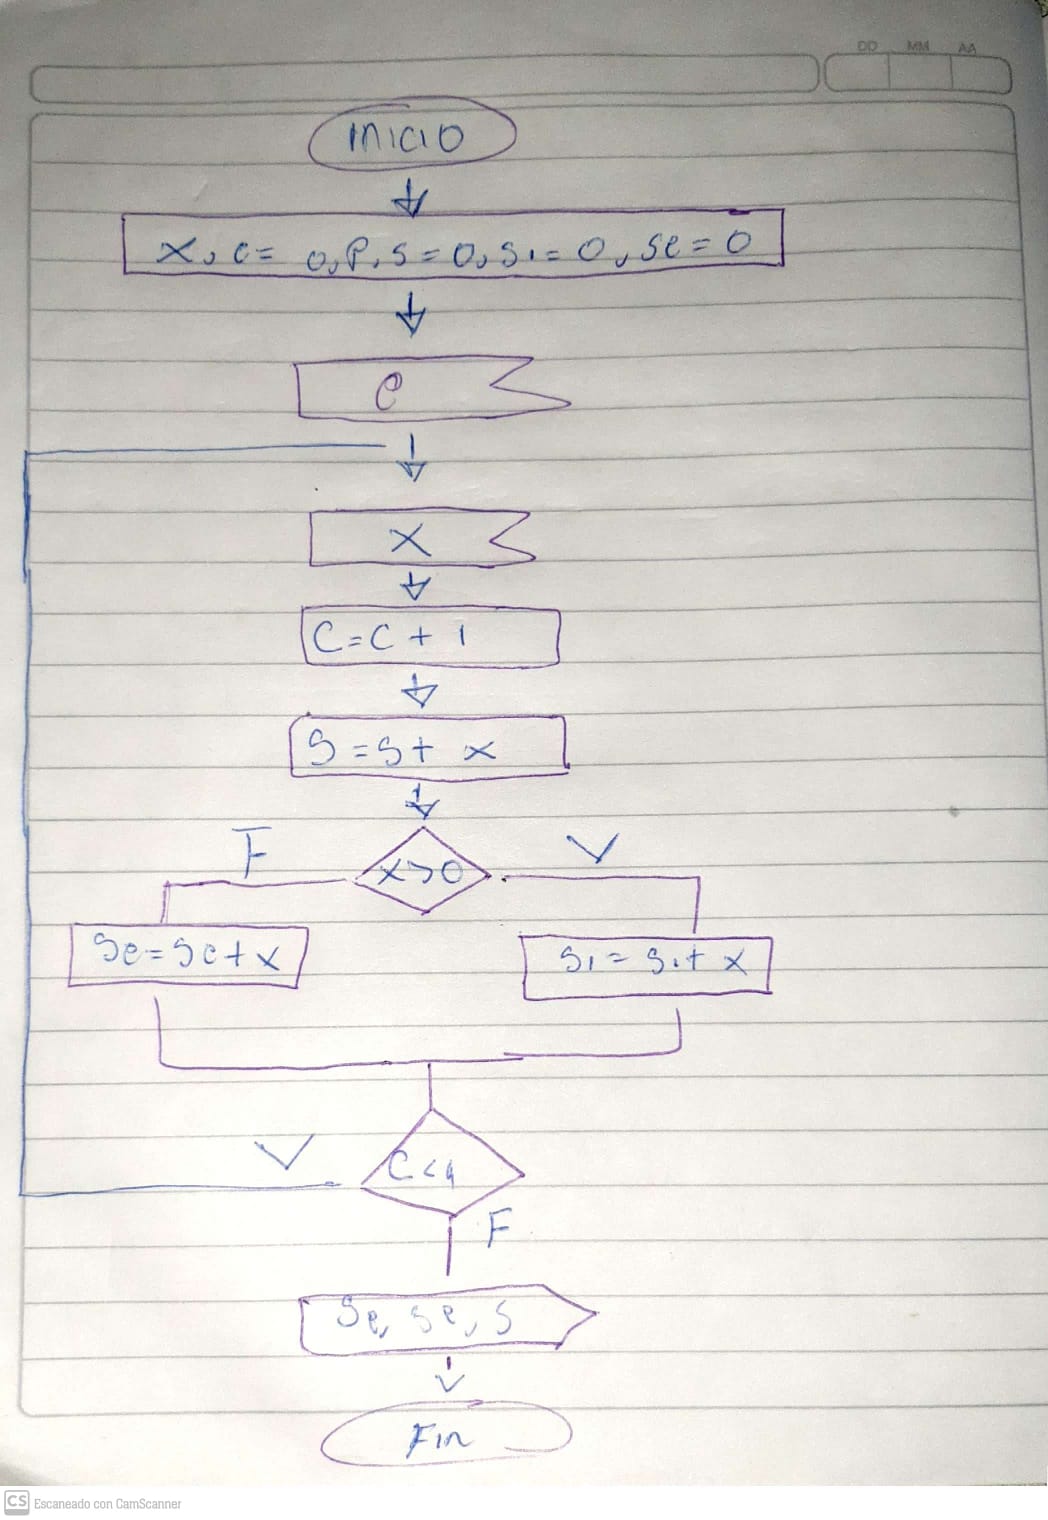 DD MM AA
INICIO
X, C= 0, P, S=0, Si=0, Se=0
X
C=C+1
S=S+ x
F V
x>0
Se=Se+x Si=Si+x
V
C<4
F
Se, Se, S
Fin
CS Escaneado con CamScanner